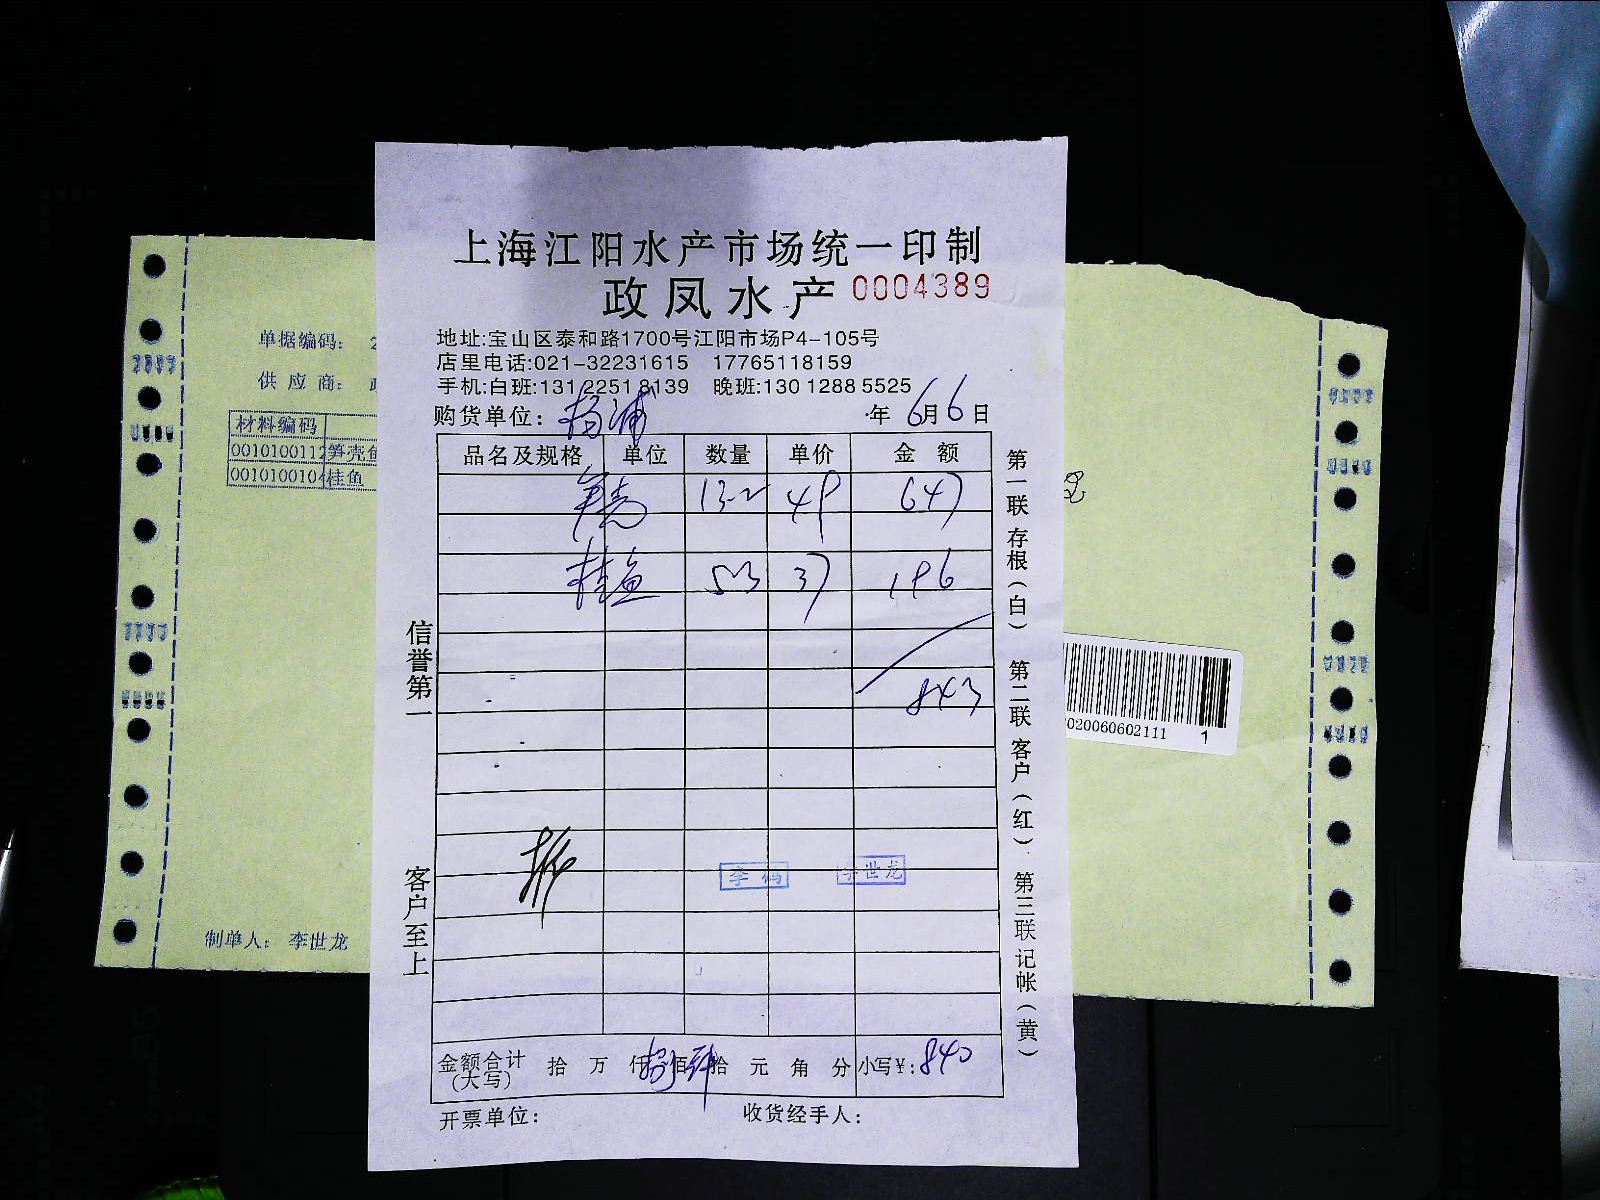 上海江阳水产市场统一印制
政凤水产 0004389
地址:宝山区泰和路1700号江阳市场P4-105号
店里电话:021-32231615 17765118159
手机:白班:131 2251 8139 晚班:130 1288 5525
购货单位: 杨浦 年 6月6日
品名及规格 单位 数量 单价 金额
13.2 49 647
桂鱼 5.3 37 196
843
金额合计(大写) 拾 万 仟 捌 佰 肆 拾 元 角 分 小写¥: 840
开票单位: 收货经手人:
信誉第一
客户至上
第一联 存根(白) 第二联 客户(红) 第三联 记帐(黄)
李世龙
单据编码:
供应商:
材料编码
0010100112 笋壳鱼
0010100104 桂鱼
制单人: 李世龙
020060602111 1